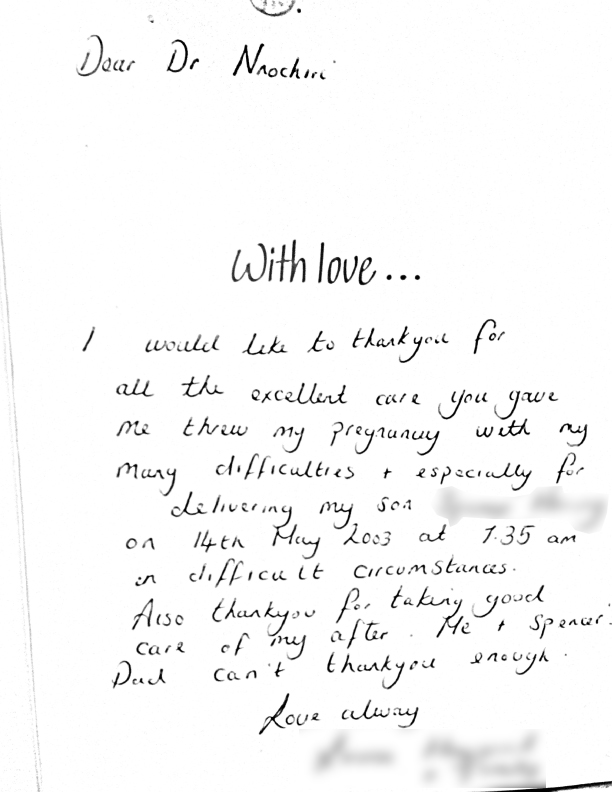 Dear Dr Nnochiri
With love...
I would like to thankyou for
all the excellent care you gave
me threw my pregnancy with my
many difficulties + especially for
delivering my son
on 14th May 2003 at 7.35 am
in difficult circumstances.
Also thankyou for taking good
care of my after. Me + Spencer.
Dad can't thankyou enough.
Love alway